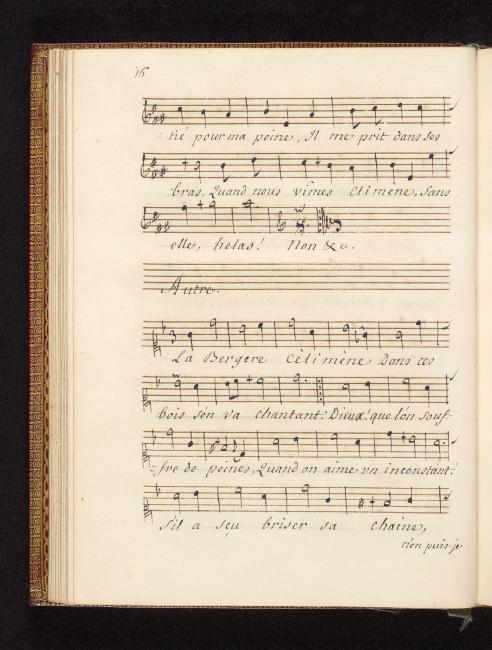 16
tié pour ma peine, Il me prit dans ses
bras, Quand nous vîmes Climène, sans
elle, helas! Non &c.
Autre.
3
La Bergere Célimène Dans ces
bois s'en va chantant: Dieux! que l'on souf-
-fre de peines, Quand on aime vn inconstant:
s'il a sçu briser sa chaine,
n'en puis-je